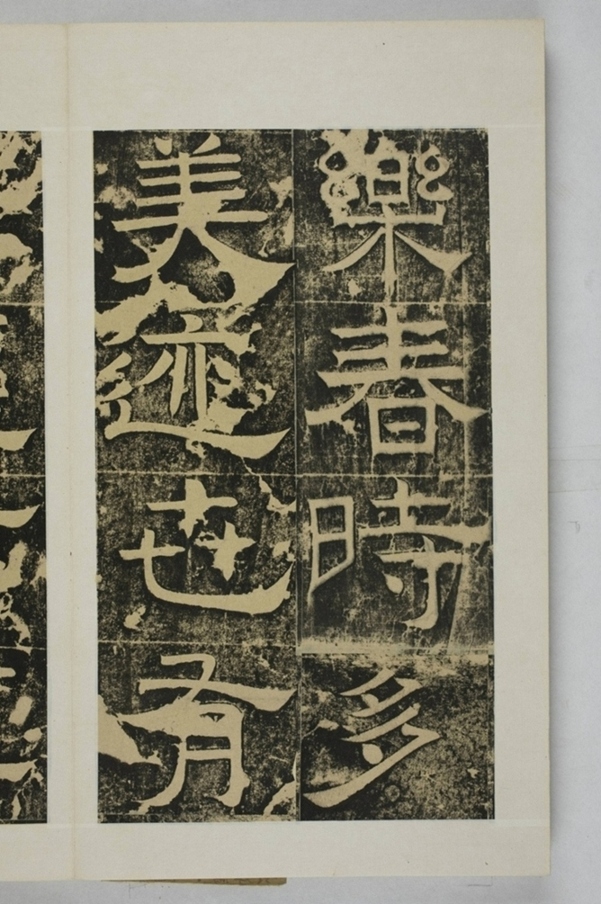 樂春時多
美迹世有